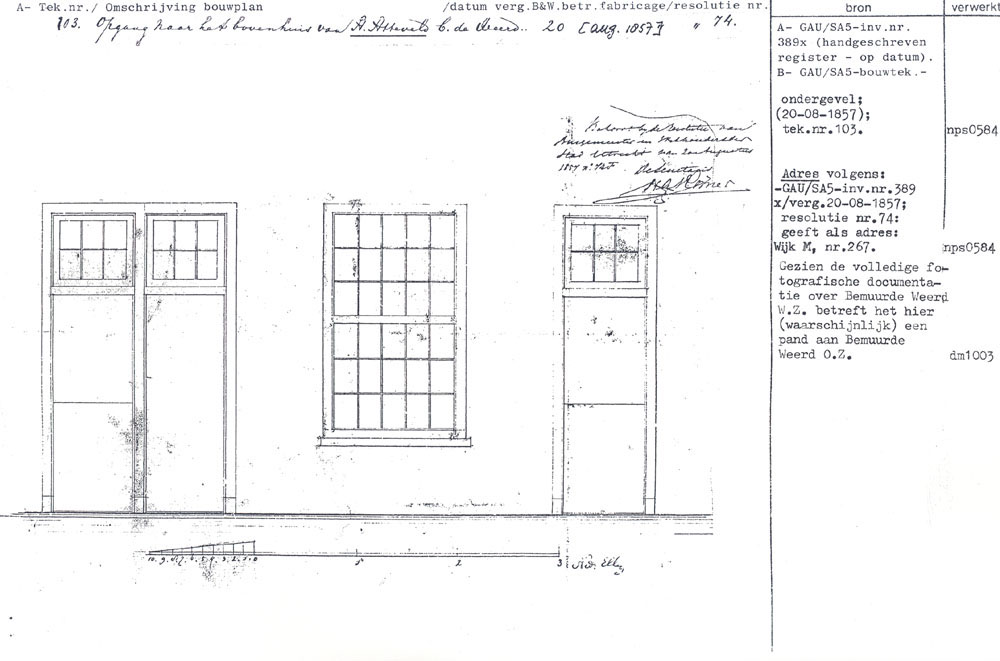 A- Tek.nr./ Omschrijving bouwplan /datum verg.B&W.betr.fabricage/resolutie nr.
103. Opgang naar het bovenhuis van A. Atteveld B. de Weerd.. 20 [aug. 1857] " 74.
bron verwerkt
A- GAU/SA5-inv.nr.
389x (handgeschreven
register - op datum).
B- GAU/SA5-bouwtek.-
ondergevel;
(20-08-1857);
tek.nr.103. nps0584
Adres volgens:
-GAU/SA5-inv.nr.389
x/verg.20-08-1857;
resolutie nr.74:
geeft als adres:
Wijk M, nr.267. nps0584
Gezien de volledige fo-
tografische documenta-
tie over Bemuurde Weerd
W.Z. betreft het hier
(waarschijnlijk) een
pand aan Bemuurde
Weerd O.Z. dm1003
Behoort bij de Resolutie van
Burgemeester en Wethouders der
Stad Utrecht van 20 Augustus
1857 No. 74
De Secretaris